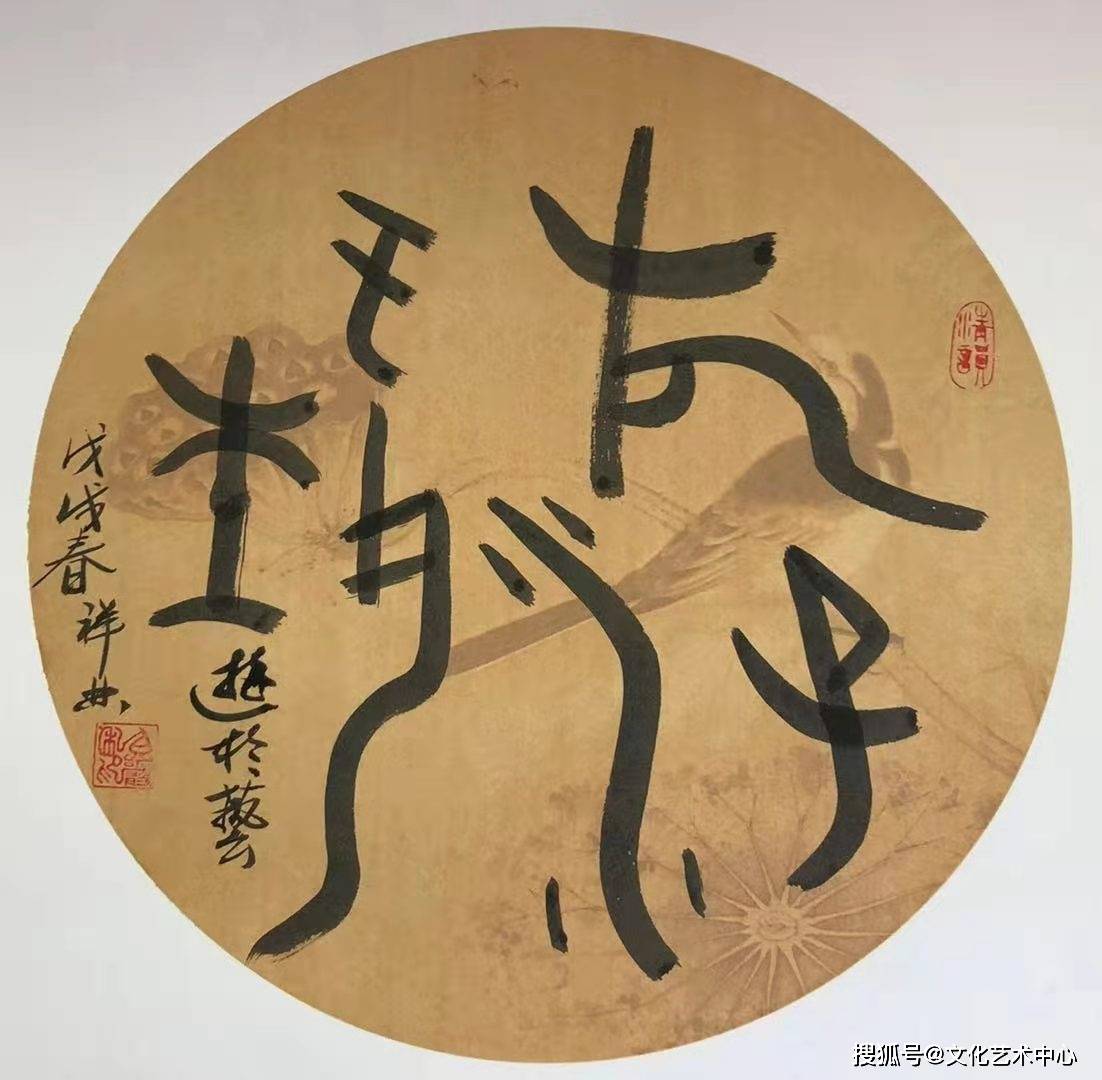 游于埶
遊於藝
戊戌春祥典
搜狐号@文化艺术中心